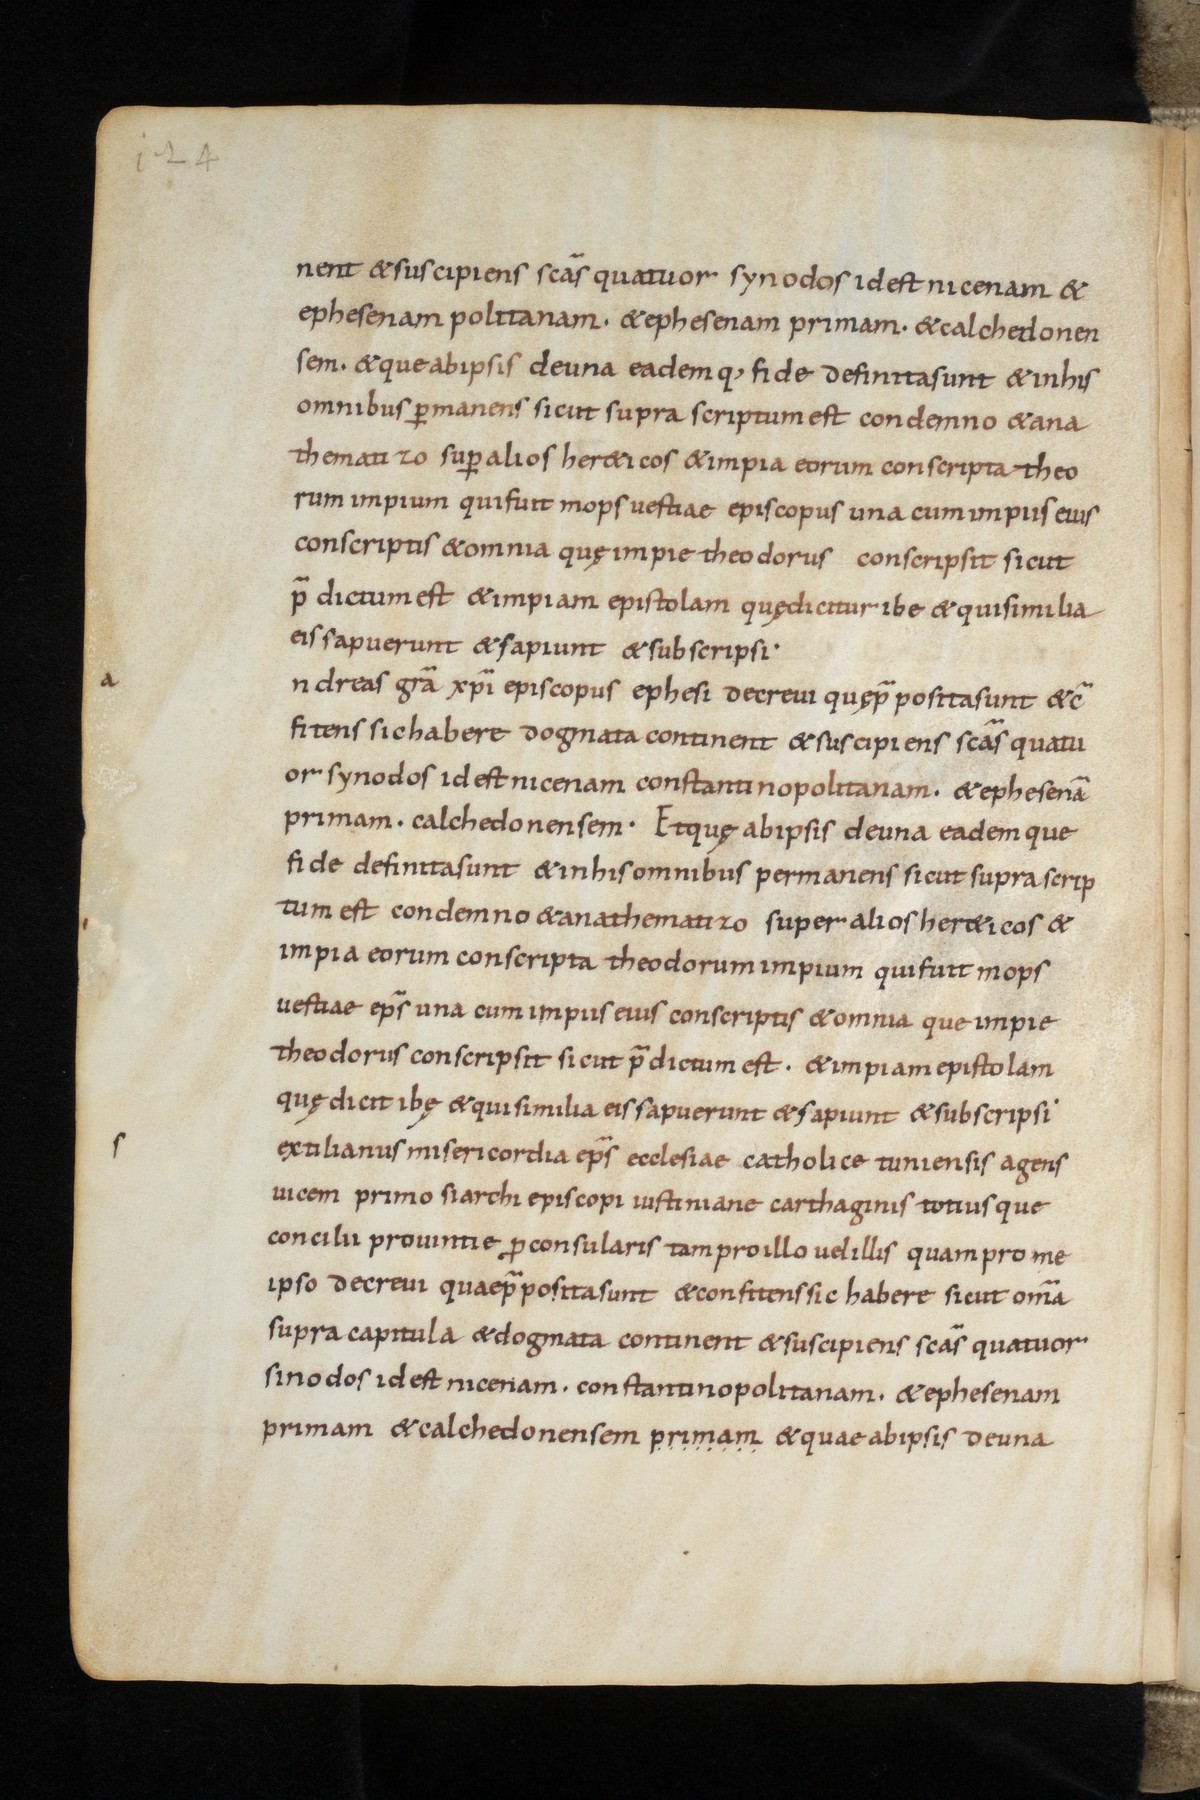 124
nent & suscipiens scãs quatuor synodos id est nicenam &
ephesenam politanam. & ephesenam primam. & calchedonen
sem. & que ab ipsis de una eademq, fide definita sunt & in his
omnibus ꝑmanens sicut supra scriptum est condemno & ana
thematizo suꝑ alios her&icos & impia eorum conscripta theo
rum impium qui fuit mopsuestiae episcopus una cum impiis eius
conscriptis & omnia quę impie theodorus conscripsit sicut
p̃dictum est & impiam epistolam quę dicitur ibe & qui similia
eis sapuerunt & sapiunt & subscripsi·
a ndreas grã xpĩ episcopus ephesi decreui quę p̃posita sunt & c̃
fitens sic habere dogmata continent & suscipiens scãs quatu
or synodos id est nicenam constantinopolitanam. & ephesenã
primam. calchedonensem· Et quę ab ipsis de una eademque
fide definita sunt & in his omnibus permanens sicut supra scrip
tum est condemno & anathematizo super alios her&icos &
impia eorum conscripta theodorum impium qui fuit mops
uestiae ep̃s una cum impiis eius conscriptis & omnia que impie
theodorus conscripsit sicut p̃dictum est. & impiam epistolam
quę dicit ibę & qui similia eis sapuerunt & sapiunt & subscripsi·
s extilianus misericordia ep̃s ecclesiae catholice tuniensis agens
uicem primo siarchi episcopi iustiniane carthaginis totiusque
concilii prouintie ꝓconsularis tam pro illo uel illis quam pro me
ipso decreui quae p̃posita sunt & confitens sic habere sicut om̃a
supra capitula & dogmata continent & suscipiens scãs quatuor
sinodos id est nicenam. constantinopolitanam. & ephesenam
primam & calchedonensem primam & quae ab ipsis de una